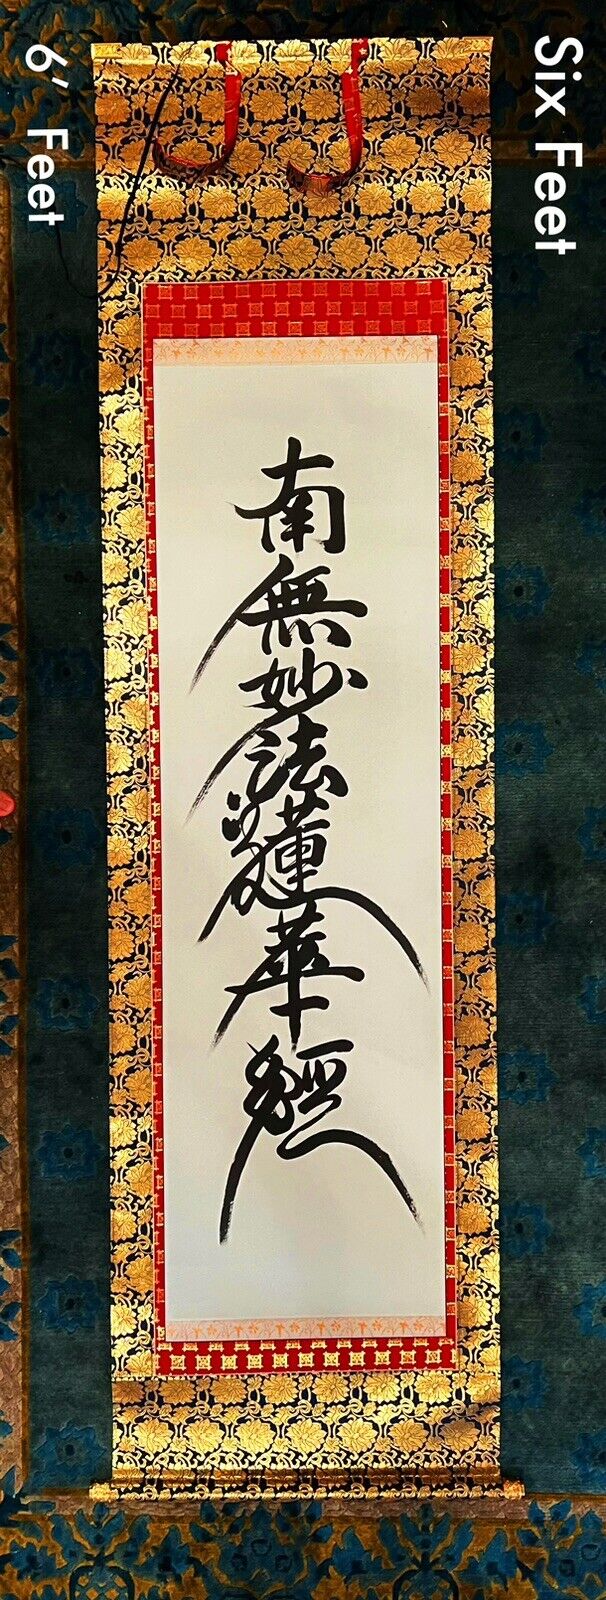 6' Feet
Six Feet
南無妙法蓮華經